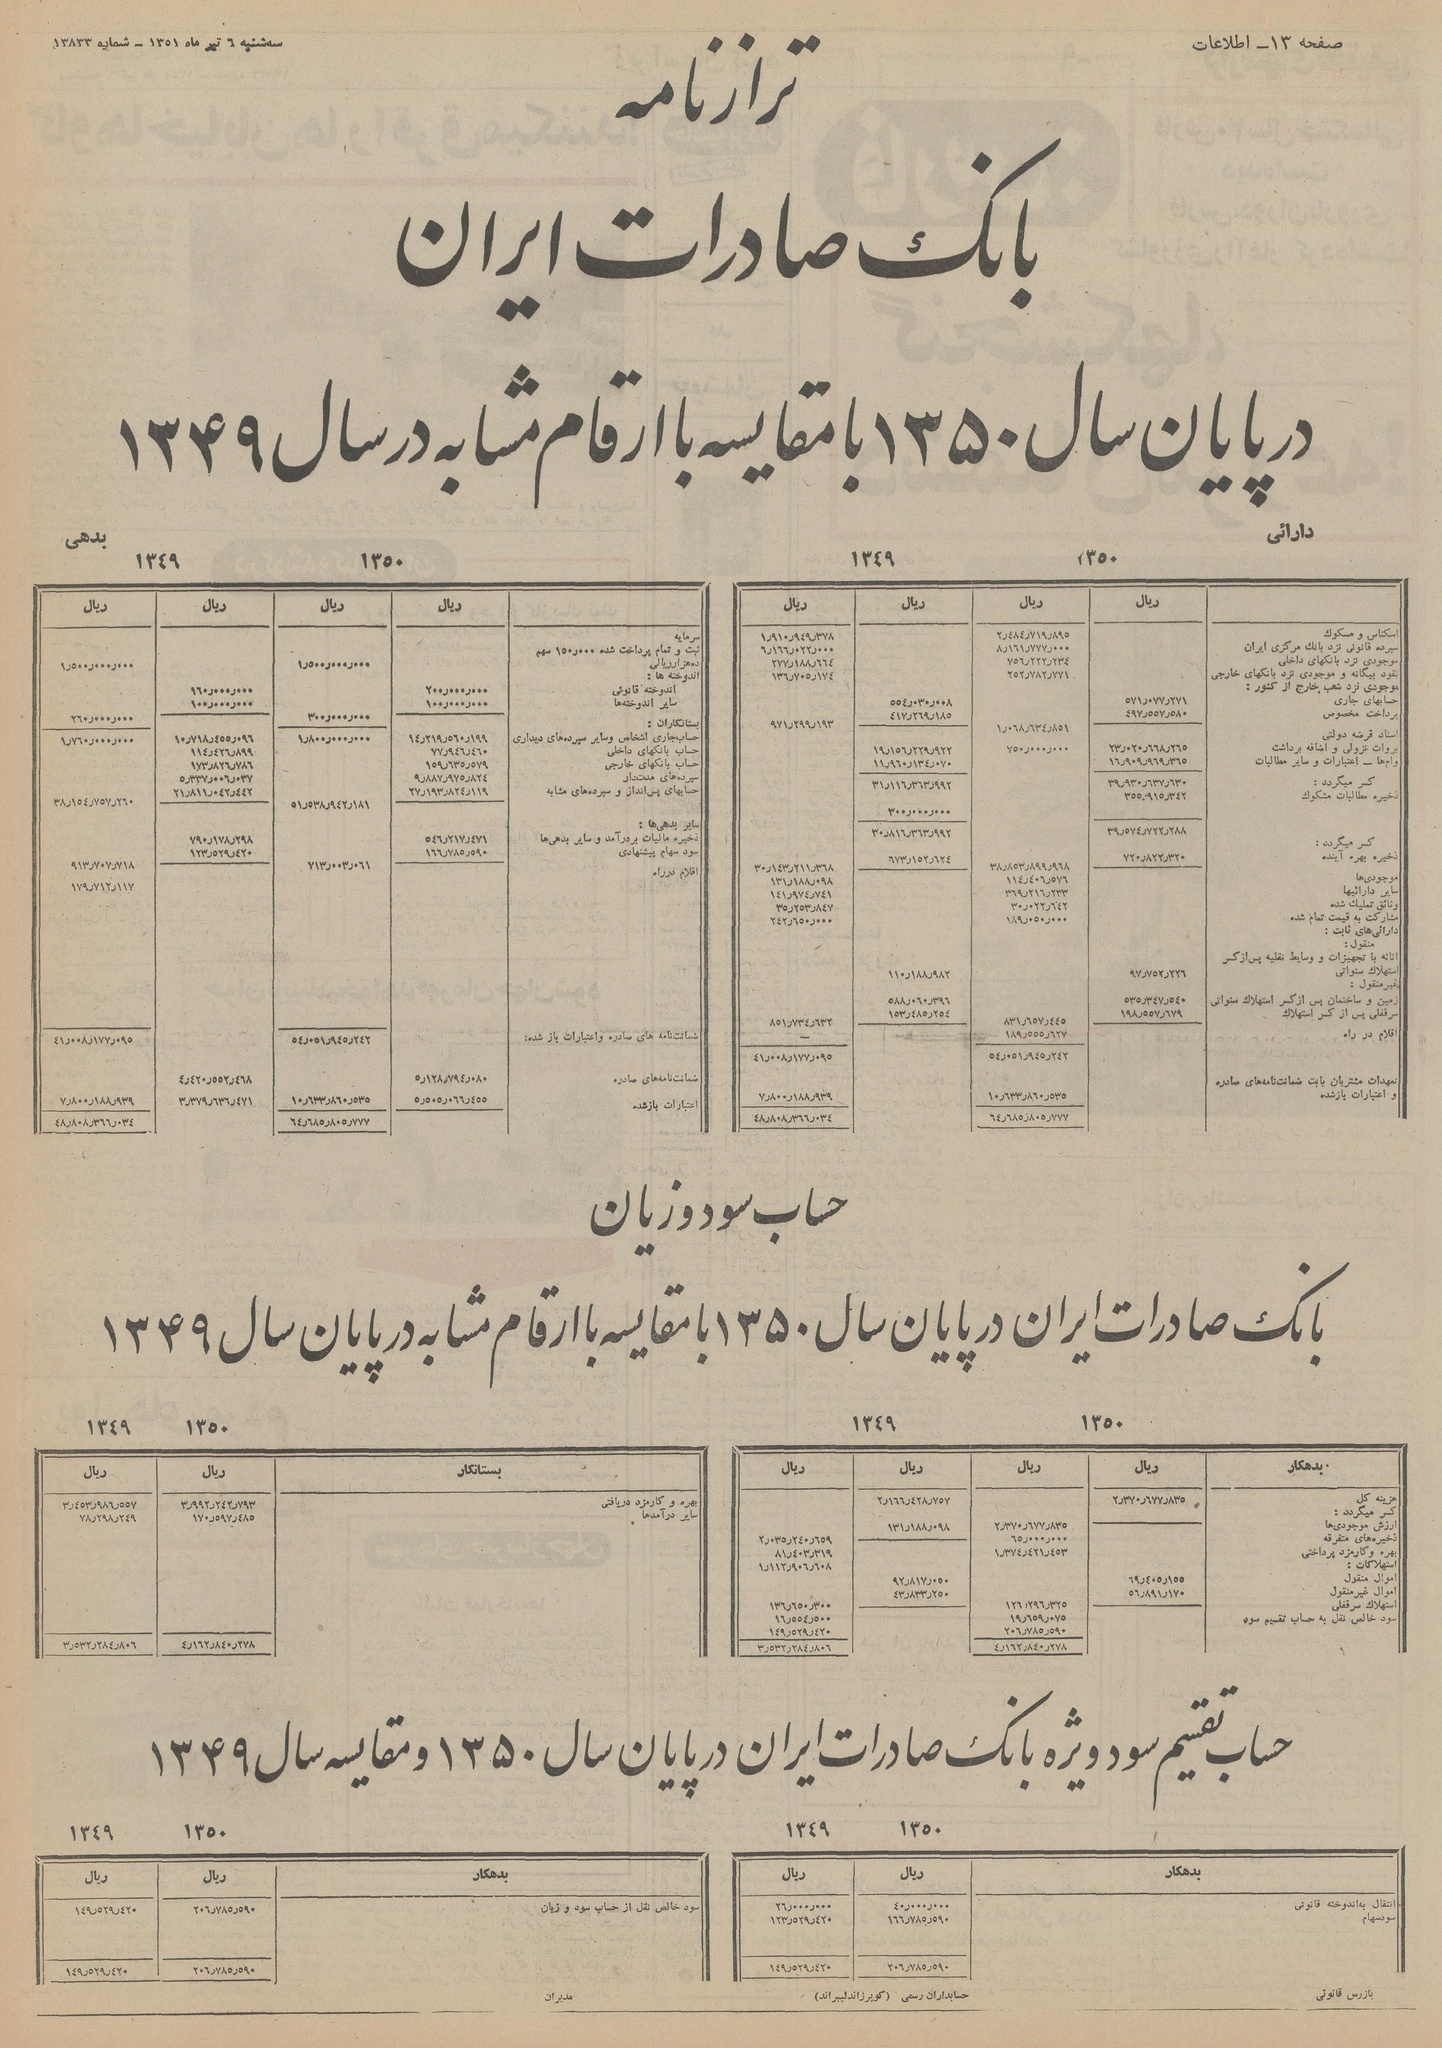 صفحه ۱۳ـ اطلاعات
سه‌شنبه ٦ تیر ماه ۱۳۵۱ ـ شماره ۱۳۸۳۳
ترازنامه
بانک صادرات ایران
در پایان سال ۱۳۵۰ با مقایسه با ارقام مشابه در سال ۱۳۴۹
دارائی
۱۳۵۰ ۱۳٤۹
ریال ریال ریال ریال
اسکناس و مسکوک ۲٫٤۸٤٫۷۱۹٫۸۹۵ ۱٫۹۱۰٫۹٤۹٫۳۷۸
سپرده قانونی نزد بانک مرکزی ایران ۸٫۱٦۱٫۷۷۷٫۰۰۰ ٦٫۱٦٦٫۰۲۲٫۰۰۰
موجودی نزد بانکهای داخلی ۷۵٦٫۲۲۲٫۲۳٤ ۲۷۷٫۱۸۸٫٦٦٤
نقود بیگانه و موجودی نزد بانکهای خارجی ۲۵۲٫۷۸۲٫۷۷۱ ۱۳٦٫۷۰۵٫۱۷٤
موجودی نزد شعب خارج از کشور :
حسابهای جاری ۵۷۱٫۰۷۷٫۲۷۱ ۵۵٤٫۰۳۰٫۰۰۸
پرداخت مخصوص ٤۹۷٫۵۵۷٫۵۸۰ ٤۱۷٫۲٦۹٫۱۸۵
۱٫۰٦۸٫٦۳٤٫۸۵۱ ۹۷۱٫۲۹۹٫۱۹۳
اسناد قرضه دولتی ۷۵۰٫۰۰۰٫۰۰۰
بروات نزولی و اضافه برداشت ۲۳٫۰۲۰٫٦٦۸٫۲٦۵ ۱۹٫۱۵٦٫۲۲۹٫۹۲۲
وام‌ها ـ اعتبارات و سایر مطالبات ۱٦٫۹۰۹٫۹٦۹٫۳٦۵ ۱۱٫۹٦۰٫۱۳٤٫۰۷۰
۳۹٫۹۳۰٫٦۳۷٫٦۳۰ ۳۱٫۱۱٦٫۳٦۳٫۹۹۲
کسر میگردد :
ذخیره مطالبات مشکوک ۳۵۵٫۹۱۵٫۳٤۲ ۳۰۰٫۰۰۰٫۰۰۰
۳۹٫۵۷٤٫۷۲۲٫۲۸۸ ۳۰٫۸۱٦٫۳٦۳٫۹۹۲
کسر میگردد :
ذخیره بهره آینده ۷۲۰٫۸۲۲٫۳۲۰ ٦۷۳٫۱۵۲٫٦۲٤
۳۸٫۸۵۳٫۸۹۹٫۹٦۸ ۳۰٫۱٤۳٫۲۱۱٫۳٦۸
موجودی‌ها ۱۱٤٫٤۰٦٫۵۷٦ ۱۳۱٫۱۸۸٫۰۹۸
سایر دارائیها ۳٦۹٫۲۱٦٫۲۳۳ ۱٤۱٫۹۷٤٫۷٤۱
وثائق تملیک شده ۳۰٫۰۲۲٫٦٤۲ ۳۵٫۲۵۳٫۸٤۷
مشارکت به قیمت تمام شده ۱۸۹٫۰۵۰٫۰۰۰ ۲٤۲٫٦۵۰٫۰۰۰
دارائی‌های ثابت :
منقول :
اثاثه یا تجهیزات و وسایط نقلیه پس‌ازکسر
استهلاک سنواتی ۹۷٫۷۵۲٫۲۲٦ ۱۱۰٫۱۸۸٫۹۸۲
غیرمنقول :
زمین و ساختمان پس ازکسر استهلاک سنواتی ۵۳۵٫۳٤۷٫۵٤۰ ۵۸۸٫۰٦۰٫۳۹٦
سرقفلی پس از کسر استهلاک ۱۹۸٫۵۵۷٫٦۷۹ ۱۵۳٫٤۸۵٫۲۵٤
۸۳۱٫٦۵۷٫٤٤۵ ۸۵۱٫۷۳٤٫٦۳۲
اقلام در راه ۱۸۹٫۵۵۵٫٦۲۷ ــ
۵٤٫۰۵۱٫۹٤۵٫۲٤۲ ٤۱٫۰۰۸٫۱۷۷٫۰۹۵
تعهدات مشتریان بابت ضمانت‌نامه‌های صادره
و اعتبارات بازشده ۱۰٫٦۳۳٫۸٦۰٫۵۳۵ ۷٫۸۰۰٫۱۸۸٫۹۳۹
٦٤٫٦۸۵٫۸۰۵٫۷۷۷ ٤۸٫۸۰۸٫۳٦٦٫۰۳٤
بدهی
۱۳۵۰ ۱۳٤۹
ریال ریال ریال ریال
سرمایه
ثبت و تمام پرداخت شده ۱۵۰٫۰۰۰ سهم
ده‌هزارریالی ۱٫۵۰۰٫۰۰۰٫۰۰۰ ۱٫۵۰۰٫۰۰۰٫۰۰۰
اندوخته ها :
اندوخته قانونی ۲۰۰٫۰۰۰٫۰۰۰ ۱٦۰٫۰۰۰٫۰۰۰
سایر اندوخته‌ها ۱۰۰٫۰۰۰٫۰۰۰ ۱۰۰٫۰۰۰٫۰۰۰
۳۰۰٫۰۰۰٫۰۰۰ ۲٦۰٫۰۰۰٫۰۰۰
بستانکاران : ۱٫۸۰۰٫۰۰۰٫۰۰۰ ۱٫۷٦۰٫۰۰۰٫۰۰۰
حساب‌جاری اشخاص وسایر سپرده‌های دیداری ۱٤٫۲۱۹٫۵٦۰٫۱۹۹ ۱۰٫۷۱۸٫٤۵۵٫۰۹٦
حساب بانکهای داخلی ۷۷٫۹٤٦٫٤٦۰ ۱۱٤٫٤۲٦٫۸۹۹
حساب بانکهای خارجی ۱۵۹٫٦۳۵٫۵۷۹ ۱۷۳٫۸۲٦٫۷۸٦
سپرده‌های مدت‌دار ۹٫۸۸۷٫۹۷۵٫۸۲٤ ۵٫۳۳۷٫۰۰٦٫۰۳۷
حسابهای پس‌انداز و سپرده‌های مشابه ۲۷٫۱۹۳٫۸۲٤٫۱۱۹ ۲۱٫۸۱۱٫۰٤۲٫٤٤۲
۵۱٫۵۳۸٫۹٤۲٫۱۸۱ ۳۸٫۱۵٤٫۷۵۷٫۲٦۰
سایر بدهی‌ها :
ذخیره مالیات بردرآمد و سایر بدهی‌ها ۵٤٦٫۲۱۷٫٤۷۱ ۷۹۰٫۱۷۸٫۲۹۸
سود سهام پیشنهادی ۱٦٦٫۷۸۵٫۵۹۰ ۱۲۳٫۵۲۹٫٤۲۰
۷۱۳٫۰۰۳٫۰٦۱ ۹۱۳٫۷۰۷٫۷۱۸
اقلام درراه ۱۷۹٫۷۱۲٫۱۱۷
۵٤٫۰۵۱٫۹٤۵٫۲٤۲ ٤۱٫۰۰۸٫۱۷۷٫۰۹۵
ضمانت‌نامه های صادره واعتبارات باز شده:
ضمانت‌نامه‌های صادره ۵٫۱۲۸٫۷۹٤٫۰۸۰ ٤٫٤۲۰٫۵۵۲٫٤٦۸
اعتبارات بازشده ۵٫۵۰۵٫۰٦٦٫٤۵۵ ۱۰٫٦۳۳٫۸٦۰٫۵۳۵ ۳٫۳۷۹٫٦۳٦٫٤۷۱ ۷٫۸۰۰٫۱۸۸٫۹۳۹
٦٤٫٦۸۵٫۸۰۵٫۷۷۷ ٤۸٫۸۰۸٫۳٦٦٫۰۳٤
حساب سود و زیان
بانک صادرات ایران در پایان سال ۱۳۵۰ با مقایسه با ارقام مشابه در پایان سال ۱۳۴۹
۱۳۵۰ ۱۳٤۹
بدهکار ریال ریال ریال ریال
هزینه کل ۲٫۳۷۰٫٦۷۷٫۸۳۵ ۲٫۱٦٦٫٤۲۸٫۷۵۷
کسر میگردد :
ارزش موجودی‌ها ۲٫۳۷۰٫٦۷۷٫۸۳۵ ۱۳۱٫۱۸۸٫۰۹۸
ذخیره‌های متفرقه ٦۵٫۰۰۰٫۰۰۰ ۲٫۰۳۵٫۲٤۰٫٦۵۹
بهره وکارمزد پرداختی ۱٫۳۷٤٫٤۲۱٫٤۵۳ ۸۱٫٤۰۳٫۳۱۹
استهلاکات : ۱٫۱۱۲٫۹۰٦٫٦۰۸
اموال منقول ٦۹٫٤۰۵٫۱۵۵ ۹۲٫۸۱۷٫۰۵۰
اموال غیرمنقول ۵٦٫۸۹۱٫۱۷۰ ٤۳٫۸۳۳٫۲۵۰
۱۲٦٫۲۹٦٫۳۲۵ ۱۳٦٫٦۵۰٫۳۰۰
استهلاک سرقفلی ۱۹٫٦۵۹٫۰۷۵ ۱٦٫۵۵٤٫۵۰۰
سود خالص نقل به حساب تقسیم سود ۲۰٦٫۷۸۵٫۵۹۰ ۱٤۹٫۵۲۹٫٤۲۰
٤٫۱٦۲٫۸٤۰٫۲۷۸ ۳٫۵۳۲٫۲۸٤٫۸۰٦
۱۳۵۰ ۱۳٤۹
بستانکار ریال ریال
بهره و کارمزد دریافتی ۳٫۹۹۲٫۲٤۲٫۷۹۳ ۳٫٤۵۳٫۹۸٦٫۵۵۷
سایر درآمدها ۱۷۰٫۵۹۷٫٤۸۵ ۷۸٫۲۹۸٫۲٤۹
٤٫۱٦۲٫۸٤۰٫۲۷۸ ۳٫۵۳۲٫۲۸٤٫۸۰٦
حساب تقسیم سود ویژه بانک صادرات ایران در پایان سال ۱۳۵۰ و مقایسه سال ۱۳۴۹
۱۳۵۰ ۱۳٤۹
بدهکار ریال ریال
انتقال به‌اندوخته قانونی ٤۰٫۰۰۰٫۰۰۰ ۲٦٫۰۰۰٫۰۰۰
سودسهام ۱٦٦٫۷۸۵٫۵۹۰ ۱۲۳٫۵۲۹٫٤۲۰
۲۰٦٫۷۸۵٫۵۹۰ ۱٤۹٫۵۲۹٫٤۲۰
۱۳۵۰ ۱۳٤۹
بدهکار ریال ریال
سود خالص نقل از حساب سود و زیان ۲۰٦٫۷۸۵٫۵۹۰ ۱٤۹٫۵۲۹٫٤۲۰
۲۰٦٫۷۸۵٫۵۹۰ ۱٤۹٫۵۲۹٫٤۲۰
بازرس قانونی حسابداران رسمی (کوپرزاندلیبراند) مدیران